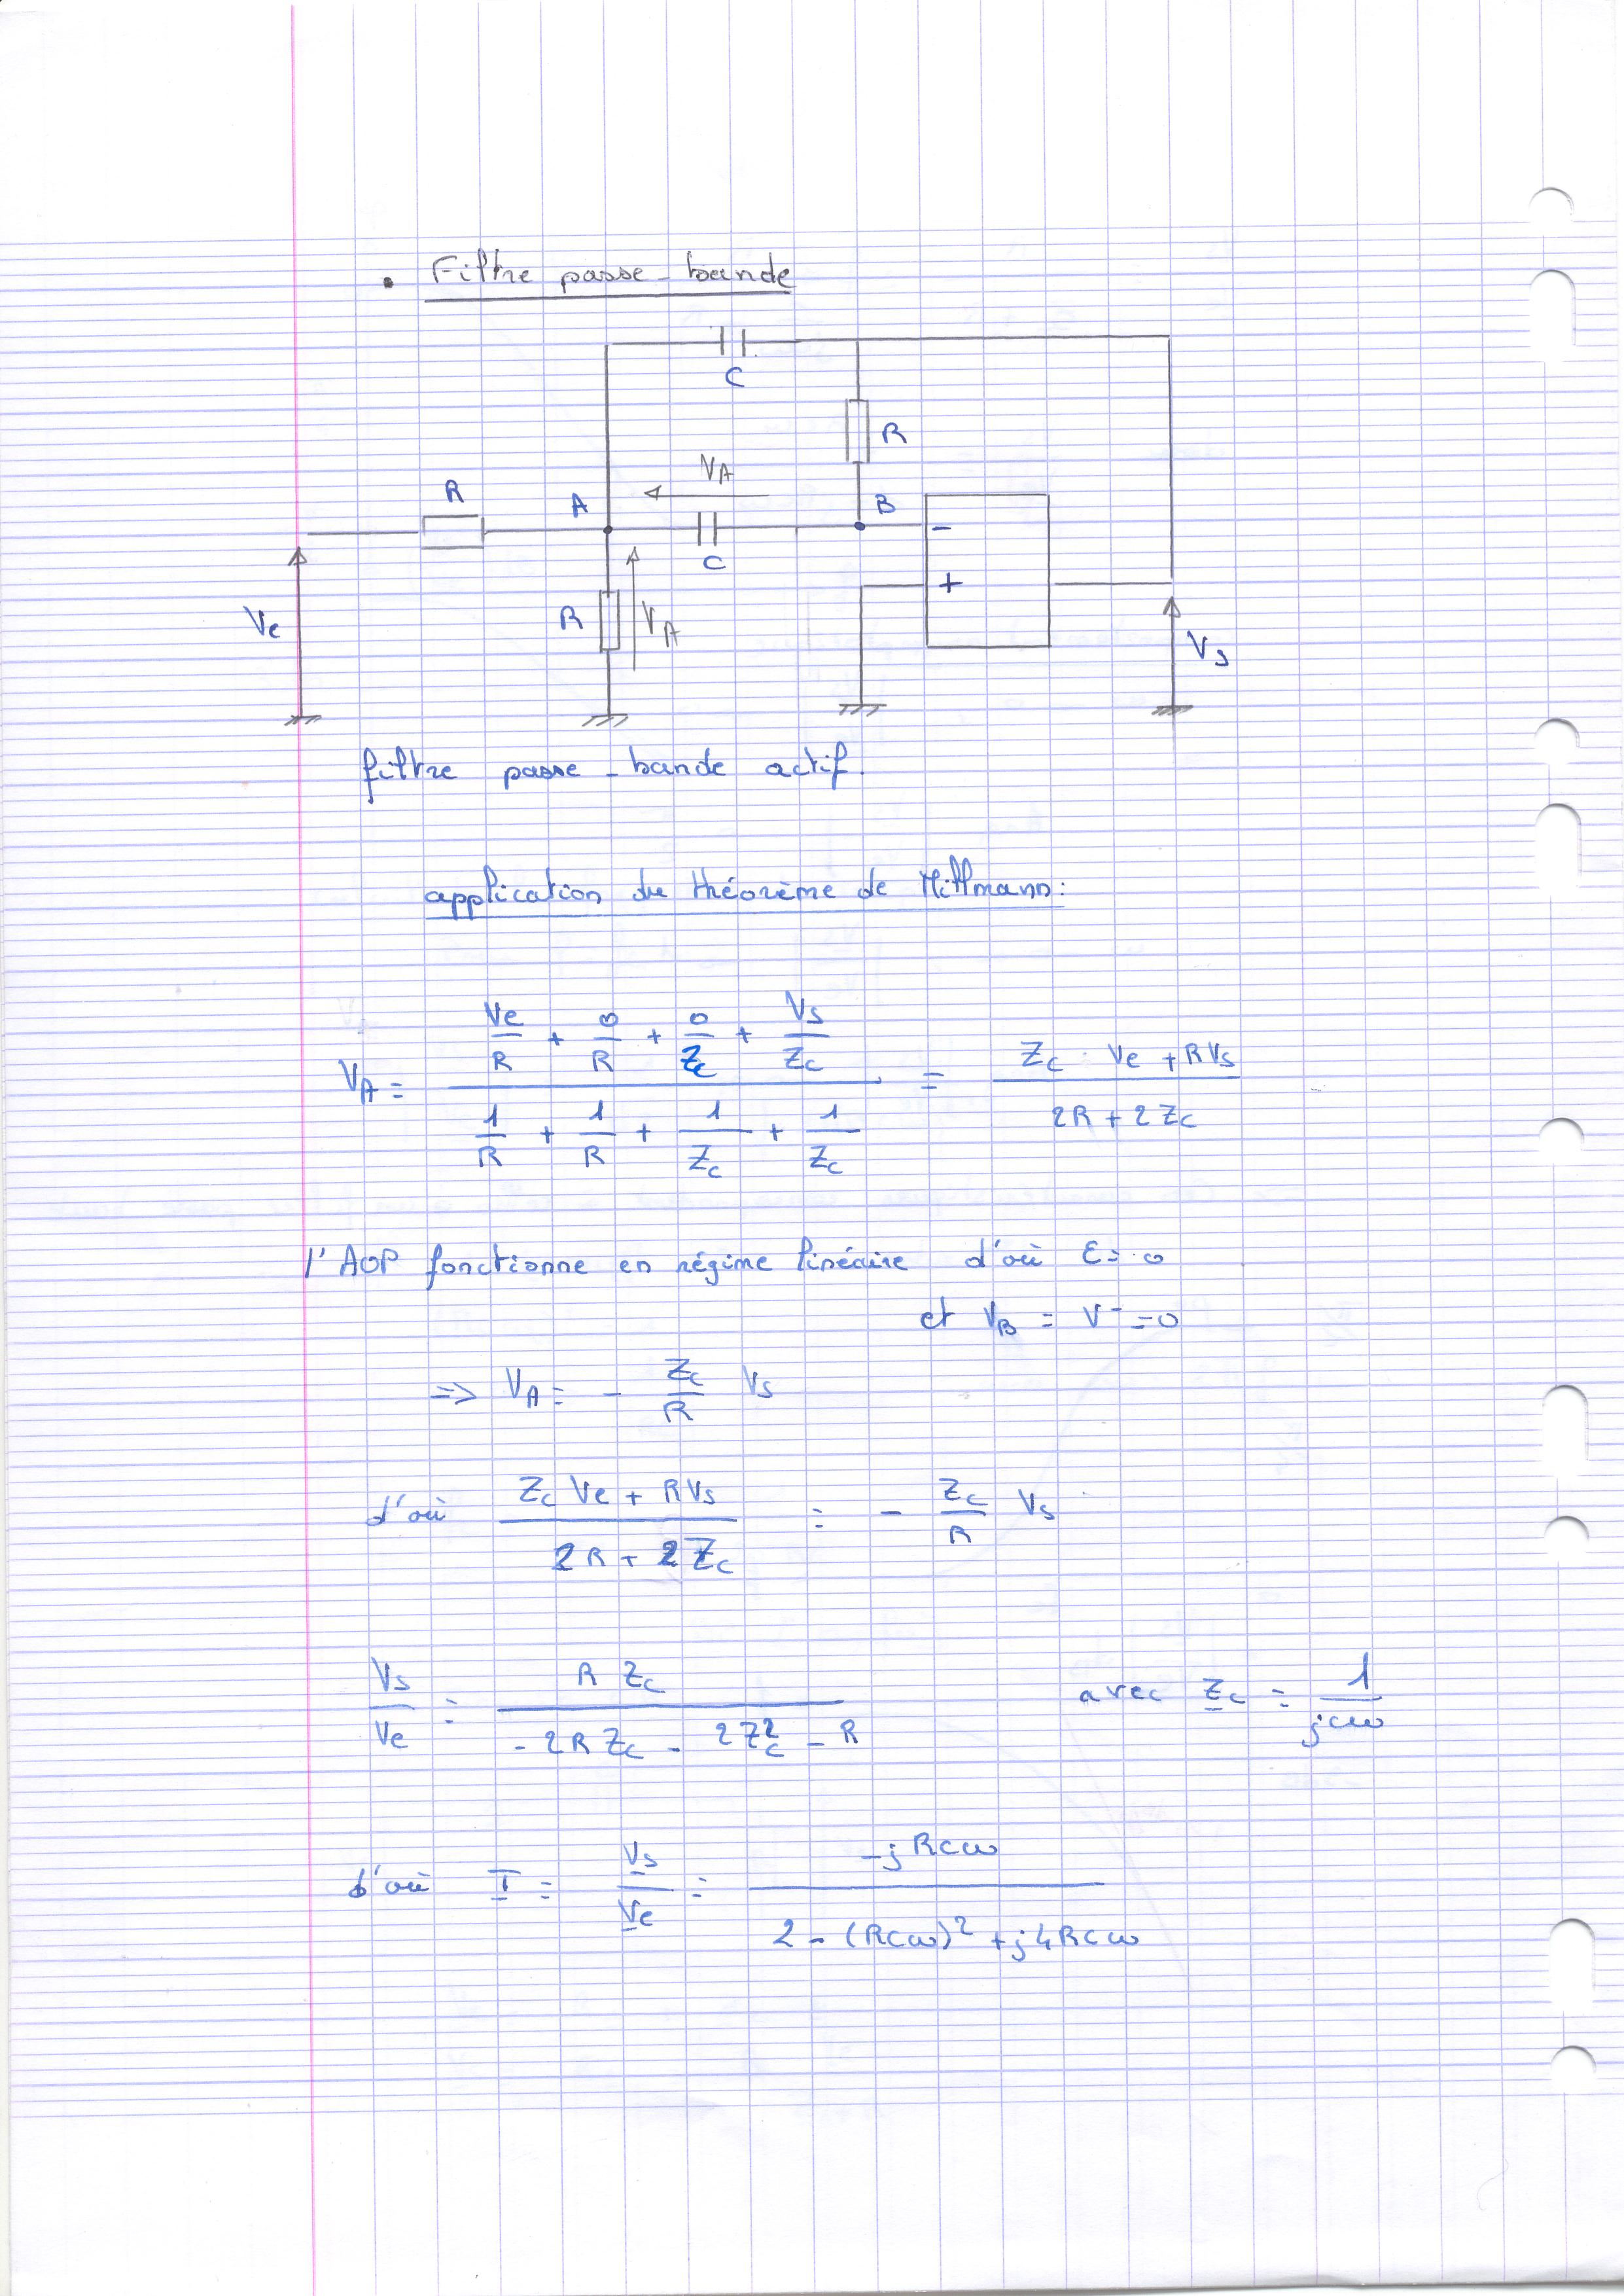 • Filtre passe-bande
C
R
VA
R
A
B
-
C
+
Ve
R
VA
Vs
filtre passe-bande actif.
application du théorème de Millmann:
VA = (Ve/R + 0/R + 0/Zc + Vs/Zc) / (1/R + 1/R + 1/Zc + 1/Zc) = (Zc · Ve + RVs) / (2R + 2Zc)
l'AOP fonctionne en régime linéaire d'où ε = 0
et VB = V⁻ = 0
=> VA = - Zc/R Vs
d'où (Zc Ve + RVs) / (2R + 2Zc) = - Zc/R Vs
Vs/Ve = R Zc / (-2RZc - 2Zc² - R) avec Zc = 1/jcω
d'où T = Vs/Ve = -jRcω / (2 - (Rcω)² + j4Rcω)